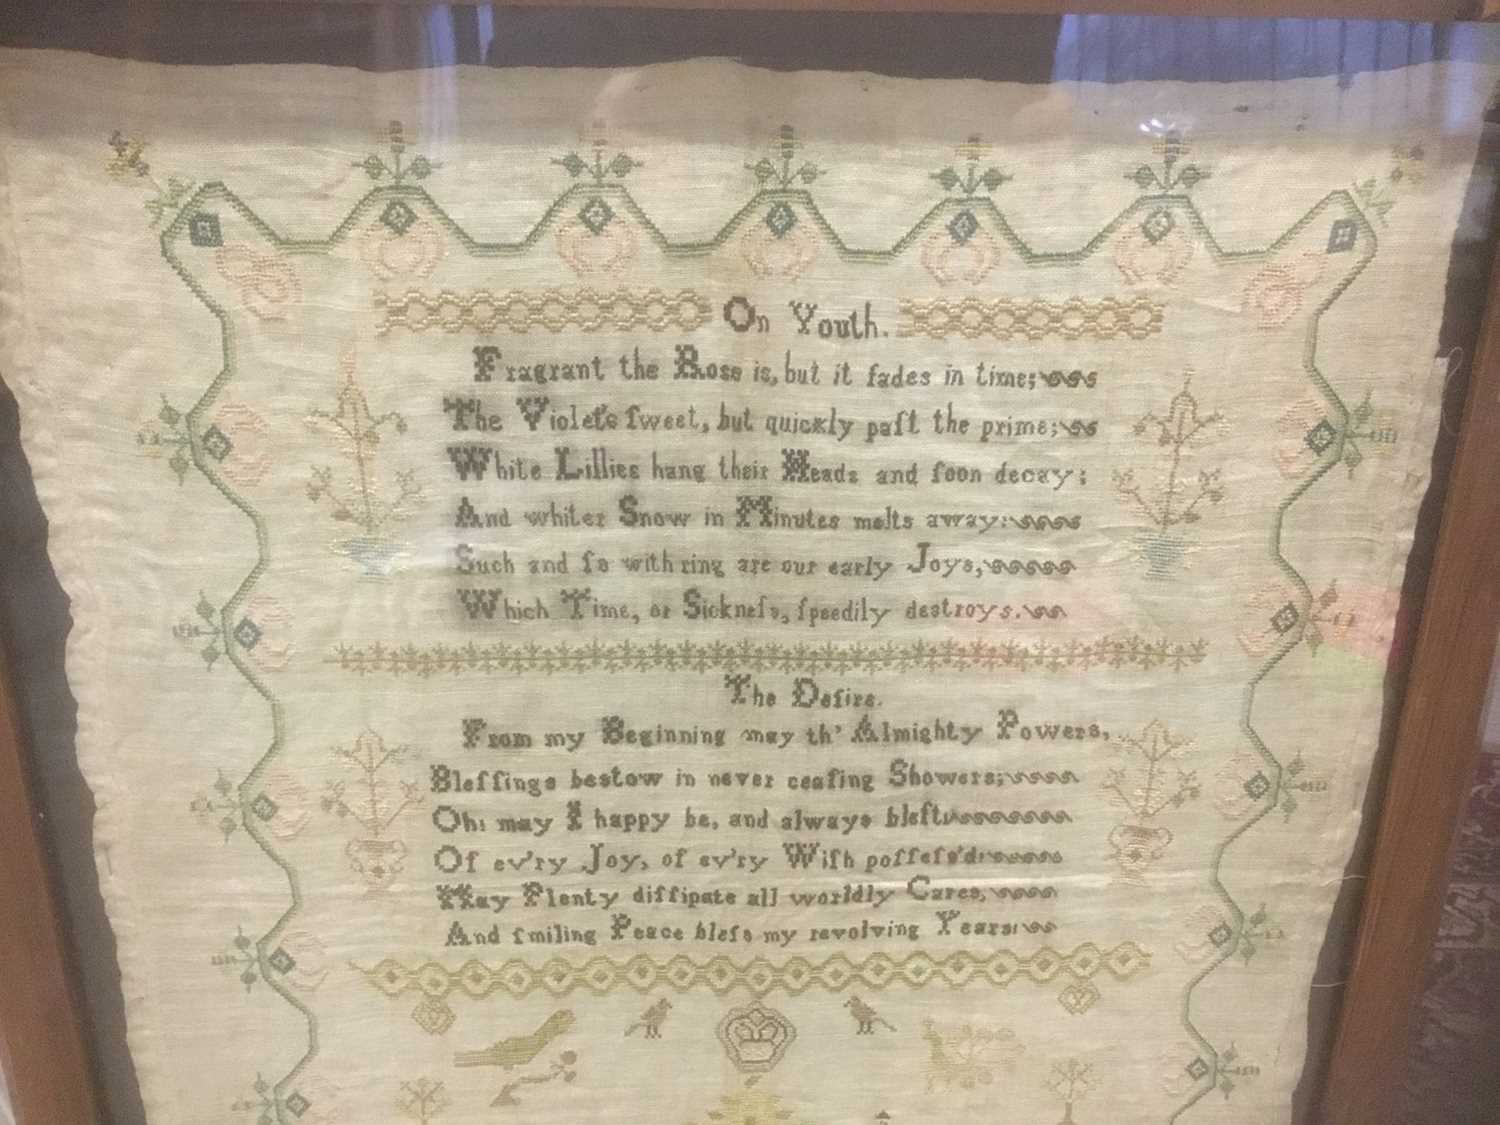 On Youth.
Fragrant the Rose is, but it fades in time;
The Violets ſweet, but quickly paſt the prime;
White Lillies hang their Heads and ſoon decay;
And whiter Snow in Minutes melts away:
Such and ſo with'ring are our early Joys,
Which Time, or Sickneſs, ſpeedily destroys.
The Deſire.
From my Beginning may th' Almighty Powers,
Bleſſings bestow in never ceaſing Showers;
Oh: may I happy be, and always bleſt;
Of ev'ry Joy, of ev'ry Wiſh poſſeſs'd:
May Plenty diſſipate all worldly Cares,
And ſmiling Peace bleſs my revolving Years: